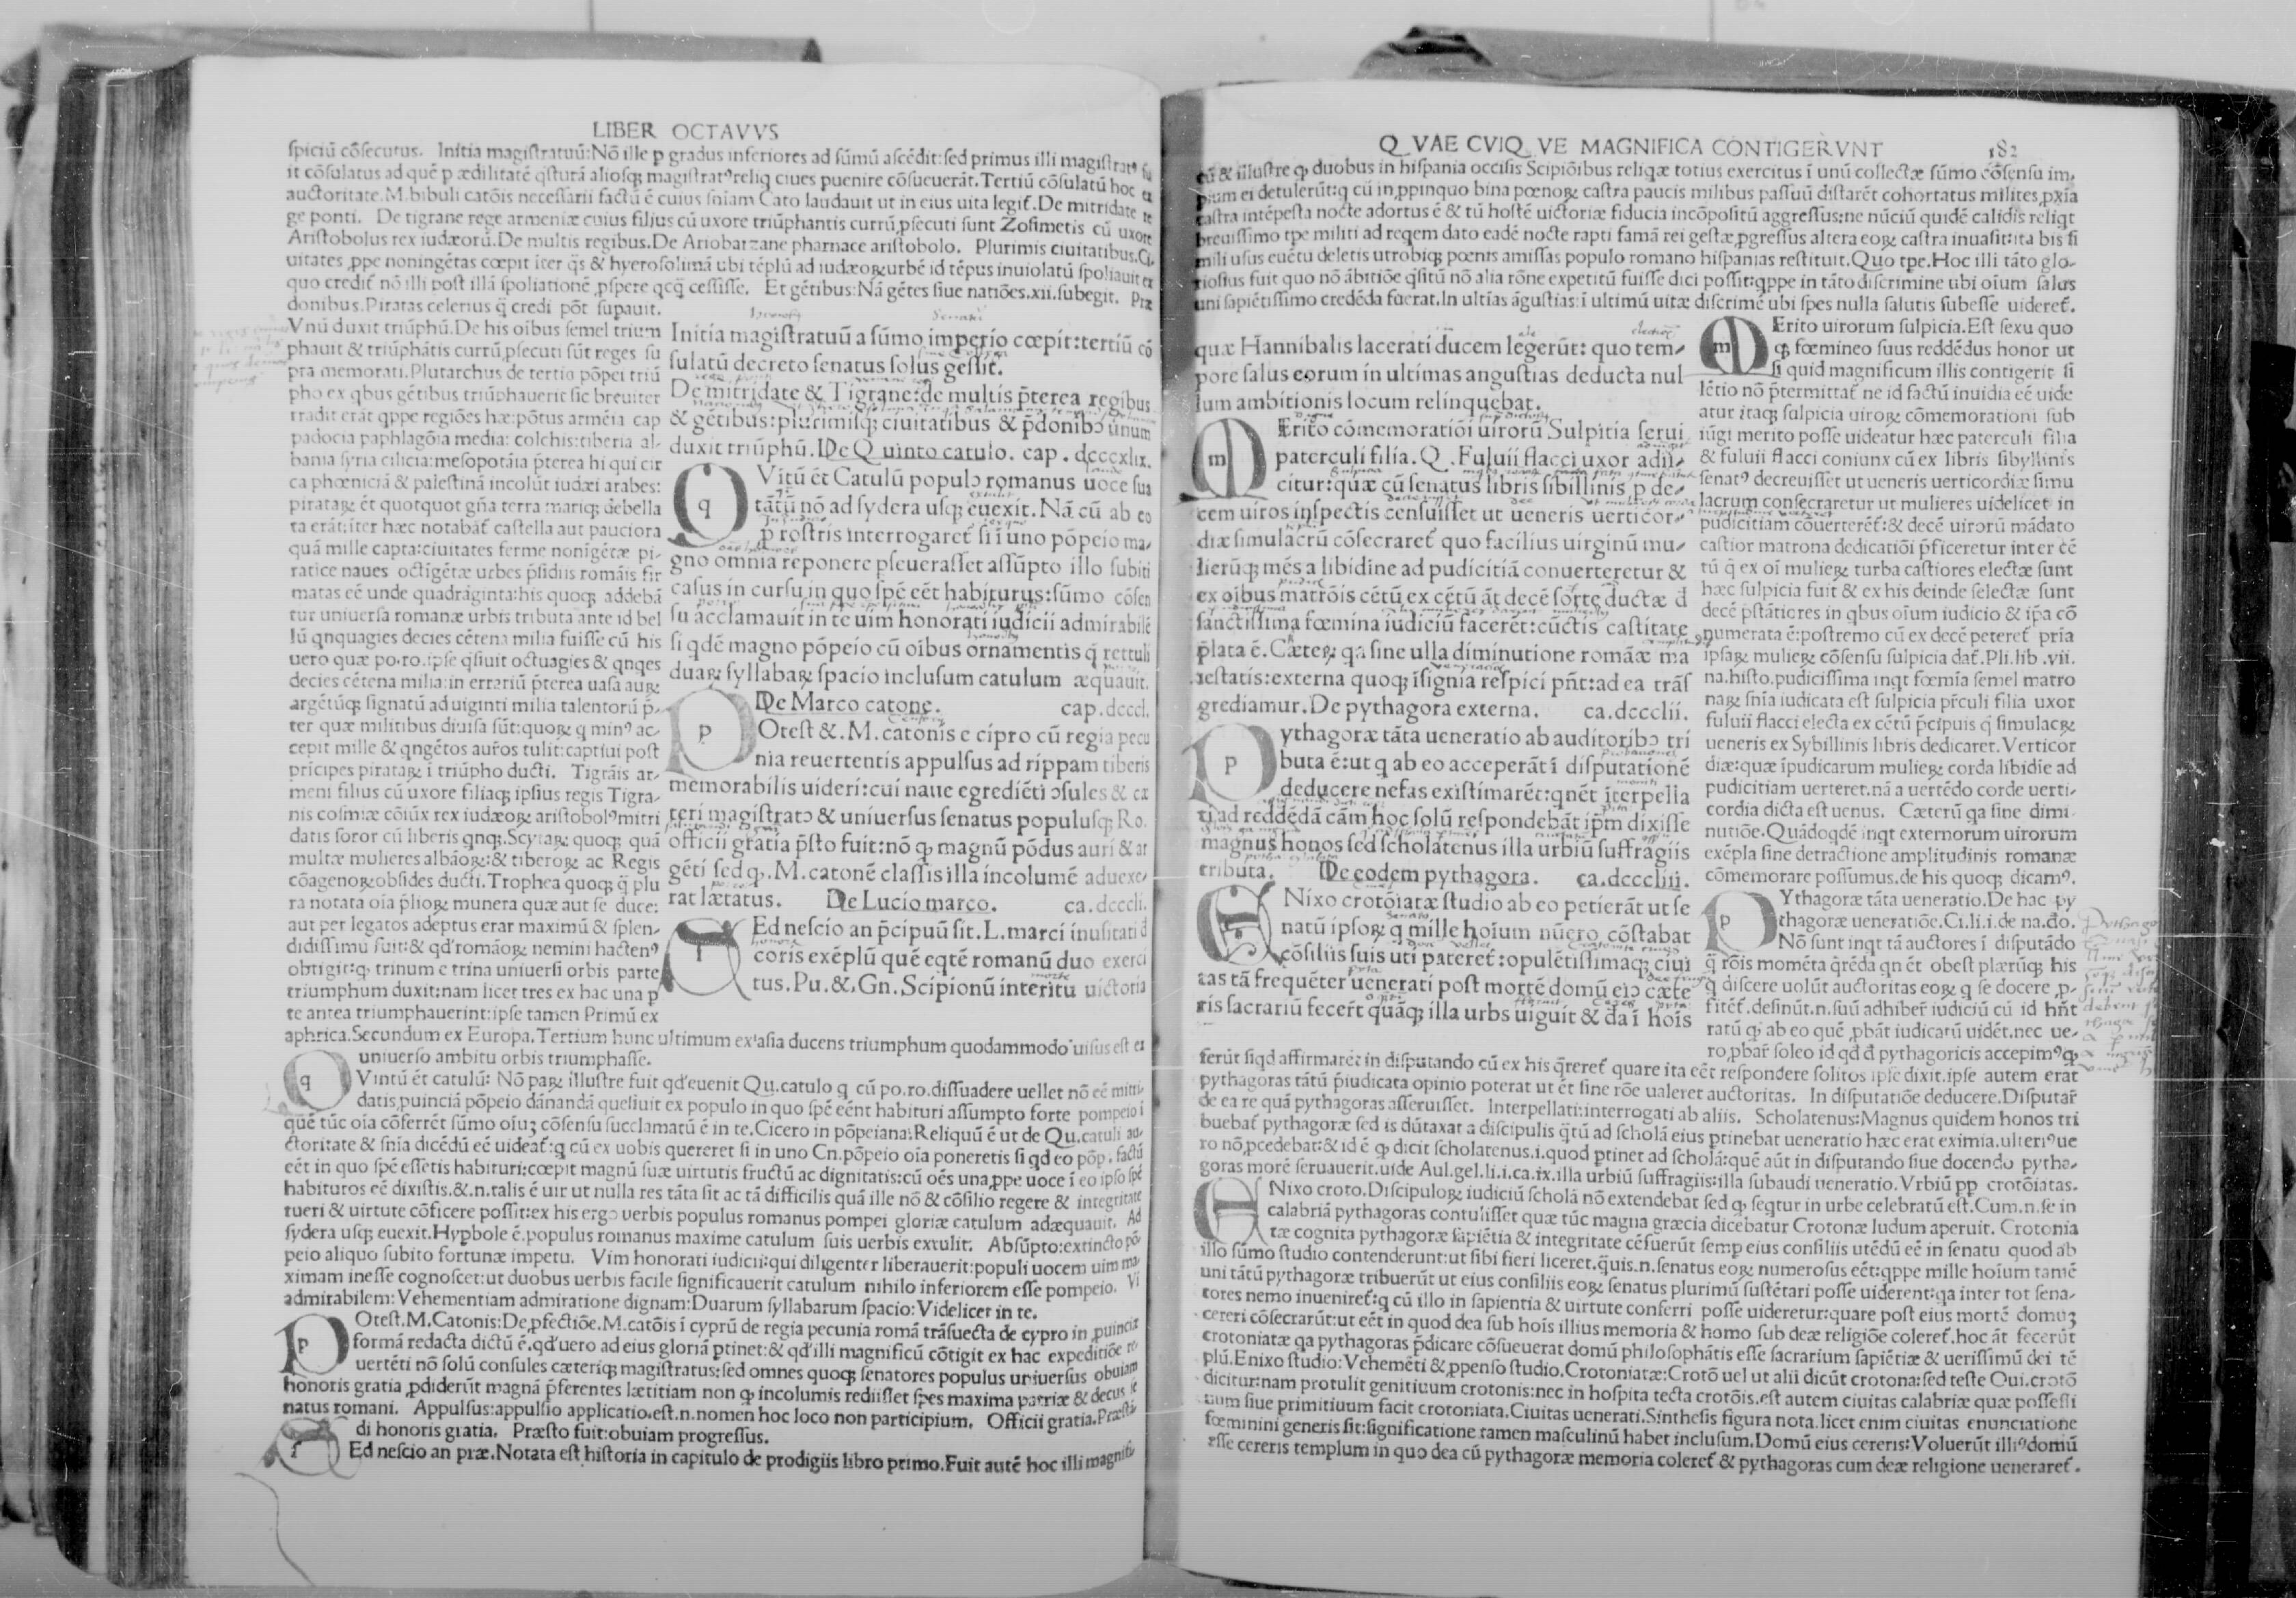 LIBER OCTAVVS
spiciū cōsecutus. Initia magistratuū: Nō ille p gradus inferiores ad sūmū ascēdit: sed primus illi magistratꝰ
it cōsulatus ad quē p ædilitatē qſturā aliosq; magistratꝰ reliq ciues puenire cōsueuerāt. Tertiū cōsulatū hoc
auctoritate. M. bibuli catōis necessarii factū ē cuius sniam Cato laudauit ut in eius uita legit̄. De mitridate re
ge ponti. De tigrane rege armeniæ cuius filius cū uxore triūphantis currū ꝓsecuti sunt Zosimetis cū uxore
Aristobolus rex iudæorū. De multis regibus. De Ariobarzane pharnace aristobolo. Plurimis ciuitatibus. Ci
uitates ꝓpe noningētas cœpit iter q̄s & hyerosolimā ubi tēplū ad iudæoꝝ urbē id tēpus inuiolatū spoliauit ex
quo credit̄ nō illi post illā spoliationē ꝓspere qcq̄ cessisse. Et gētibus: Nā gētes siue natiōes. xii. subegit. Præ
donibus. Piratas celerius q̄ credi pōt supauit.
Vnū duxit triūphū. De his oībus semel trium
phauit & triūphātis currū ꝓsecuti sūt reges su
pra memorati. Plutarchus de tertia pōpei triū
pho ex qbus gētibus triūphauerit sic breuiter
tradit erāt qppe regiōes hæ: pōtus armēia cap
padocia paphlagōia media: colchis: tiberia al-
bania syria cilicia: mesopotāia p̄terea hi qui cir
ca phœniciā & palestinā incolūt iudæi arabes:
pirataꝝ ēt quotquot gña terra mariq; debella
ta erāt: iter hæc notabāt̄ castella aut pauciora
quā mille capta: ciuitates ferme nonigētæ pi-
ratice naues octigētæ urbes p̄sidiis romāis fir
matas eē unde quadraginta: his quoq; addebā
tur uniuersa romanæ urbis tributa ante id bel
lū qnquagies decies cētena milia fuisse cū his
uero quæ po. ro. ipse qſiuit octuagies & qnqes
decies cētena milia: in errariū p̄terea uasa auꝝ
argētūq; signatū ad uiginti milia talentorū p̄-
ter quæ militibus diuisa sūt: quoꝝ q minꝰ ac-
cepit mille & qngētos aur̄os tulit: captiui post
pricipes pirataꝝ i triūpho ducti. Tigrāis ar-
meni filius cū uxore filiaq; ipsius regis Tigra-
nis cosmiæ cōiūx rex iudæoꝝ aristobolꝰ mitri
datis soror cū liberis qnq;. Scytaꝝ quoq; quā
multæ mulieres albāoꝝ: & tiberoꝝ ac Regis
cōagenoꝝ obsides ducti. Trophea quoq; q̄ plu
ra notata oīa p̄lioꝝ munera quæ aut se duce:
aut per legatos adeptus erar maximū & splen-
didissimū fuit: & qd' romāoꝝ nemini hactenꝰ
obtigit: ꝙ trinum e trina uniuersi orbis parte
triumphum duxit: nam licet tres ex hac una p
te antea triumphauerint: ipse tamen Primū ex
aphrica. Secundum ex Europa. Tertium hunc ultimum ex asia ducens triumphum quodammodo uisus est ex
uniuerso ambitu orbis triumphasse.
Initia magistratuū a sūmo imperio cœpit: tertiū cō
sulatū decreto senatus solus gessit.
De mitridate & Tigrane: de multis p̄terea regibus
& gētibus: plurimisq; ciuitatibus & p̄donibꝰ ūnum
duxit triūphū. De Quinto catulo. cap. dcccxlix.
q Vitū ēt Catulū populꝰ romanus uoce sua
tātū nō ad sydera usq; euexit. Nā cū ab eo
p̄ rostris interrogaret̄ si ī uno pōpeio ma-
gno omnia reponere pseuerasset assūpto illo subiti
casus in cursu in quo spē eēt habiturus: sūmo cōsen
su acclamauit in te uim honorati iudicii admirabilē
si qdē magno pōpeio cū oībus ornamentis q̄ rettuli
duaꝝ syllabaꝝ spacio inclusum catulum æquauit.
De Marco catone. cap. dcccl.
p Otest &. M. catonis e cipro cū regia pecu
nia reuertentis appulsus ad rippam tiberis
memorabilis uideri: cui naue egrediēti ꝯsules & cæ
teri magistratꝰ & uniuersus senatus populusq; Ro.
officii gratia p̄sto fuit: nō ꝙ magnū pōdus auri & ar
gēti sed ꝙ. M. catonē classis illa incolumē aduexe-
rat lætatus. De Lucio marco. ca. dcccli.
Ed nescio an p̄cipuū sit. L. marci inusitati d
coris exēplū quē eqtē romanū duo exerci
tus. Pu. &. Gn. Scipionū interitu uictoria
q Vintū ēt catulū: Nō paꝝ illustre fuit qd' euenit Qu. catulo q cū po. ro. dissuadere uellet nō eē mitri-
datis ꝓuinciā pōpeio dānandā quesiuit ex populo in quo spē eēnt habituri assumpto forte pompeio i
quē tūc oīa cōferrēt sūmo oīuꝫ cōsensu succlamatū ē in te. Cicero in pōpeiana: Reliquū ē ut de Qu. catuli au-
ctoritate & snīa dicēdū eē uideat̄: q cū ex uobis quereret si in uno Cn. pōpeio oīa poneretis si qd eo pōp. factū
eēt in quo spē essetis habituri: cœpit magnū suæ uirtutis fructū ac dignitatis: cū oēs una ꝓpe uoce ī eo ipso spē
habituros eē dixistis. &. n. talis ē uir ut nulla res tāta sit ac tā difficilis quā ille nō & cōsilio regere & integritate
tueri & uirtute cōficere possit: ex his ergo verbis populus romanus pompei gloriæ catulum adæquauit. Ad
sydera usq; euexit. Hypbole ē. populus romanus maxime catulum suis uerbis extulit. Absūpto: extincto pō
peio aliquo subito fortunæ impetu. Vim honorati iudicii: qui diligenter liberauerit: populi uocem uim ma
ximam inesse cognoscet: ut duobus uerbis facile significauerit catulum nihilo inferiorem esse pompeio. Vi
admirabilem: Vehementiam admiratione dignam: Duarum syllabarum spacio: Videlicet in te.
p Otest. M. Catonis: De ꝓfectiōe. M. catōis ī cyprū de regia pecunia romā trāsuecta de cypro in ꝓuinciæ
formā redacta dictū ē. qd' uero ad eius gloriā ptinet: & qd' illi magnificū cōtigit ex hac expeditiōe re
uertēti nō solū consules cæteriq; magistratus: sed omnes quoq; senatores populus uniuersus obuiam
honoris gratia ꝓdiderūt magnā p̄ferentes lætitiam non ꝙ incolumis rediisset spes maxima patriæ & decus se
natus romani. Appulsus: appulsio applicatio. est. n. nomen hoc loco non participium. Officii gratia. Præsti
di honoris gratia. Præsto fuit: obuiam progressus.
Ed nescio an præ. Notata est historia in capitulo de prodigiis libro primo. Fuit autē hoc illi magnifi
QVAE CVIQVE MAGNIFICA CONTIGERVNT 182
cū & illustre ꝙ duobus in hispania occisis Scipiōibus reliqæ totius exercitus ī unū collectæ sūmo cōsensu im-
pium ei detulerūt: q cū in ꝓpinquo bina pœnoꝝ castra paucis milibus passuū distarēt cohortatus milites ꝓxīa
castra intēpesta nocte adortus ē & tū hostē uictoriæ fiducia incōpositū aggressus: ne nūciū quidē calidis reliqt
breuissimo tpe militi ad reqem dato eadē nocte rapti famā rei gestæ ꝓgressus altera eoꝝ castra inuasit: ita bis si
mili usus euētu deletis utrobiq; pœnis amissas populo romano hispanias restituit. Quo tpe. Hoc illi tāto glo-
riosius fuit quo nō ābitiōe qſitū nō alia rōne expetitū fuisse dici possit: qppe in tāto discrimine ubi oīum salus
uni sapiētissimo credēda fuerat. In ultias āgustias: ī ultimū uitæ discrimē ubi spes nulla salutis subesse uideret̄.
quæ Hannibalis lacerati ducem legerūt: quo tem-
pore salus eorum in ultimas angustias deducta nul
lum ambitionis locum relinquebat.
m Erito cōmemoratiōi uirorū Sulpitia serui
paterculi filia. Q. Fuluii flacci uxor adii-
citur: quæ cū senatus libris sibillinis p de-
cem uiros inspectis censuisset ut ueneris uerticor-
diæ simulacrū cōsecraret̄ quo facilius uirginū mu-
lierūq; mēs a libidine ad pudicitiā conuerteretur &
ex oībus matrōis cētū ex cētū āt decē sorte ductæ d
sanctissima fœmina iudiciū facerēt: cūctis castitate
p̄lata ē. Cæteꝝ qa sine ulla diminutione romāæ ma
iestatis: externa quoq; īsignia respici pn̄t: ad ea trās
grediamur. De pythagora externa. ca. dccclii.
p ythagoræ tāta ueneratio ab auditoribꝰ tri
buta ē: ut q ab eo acceperāt ī disputationē
deducere nefas existimarēt: qnēt īterpella
ti ad reddēdā cām hoc solū respondebāt ip̄m dixisse
magnus honos sed scholatenus illa urbiū suffragiis
tributa. De eodem pythagora. ca. dcccliii.
E Nixo crotōiatæ studio ab eo petierāt ut se
natū ipsoꝝ q mille hoīum nūero cōstabat
cōsiliis suis uti pateret̄: opulētissimaq; ciui
tas tā frequēter uenerati post mortē domū eiꝰ cæte
ris sacrariū fecer̄t quāq; illa urbs uiguit & dā ī hoīs
m Erito uirorum sulpicia. Est sexu quo
q; fœmineo suus reddēdus honor ut
si quid magnificum illis contigerit si
lētio nō p̄termittat̄ ne id factū inuidia eē uide
atur itaq; sulpicia uiroꝝ cōmemorationi sub
iūgi merito posse uideatur hæc paterculi filia
& fuluii flacci coniunx cū ex libris sibyllinis
senatꝰ decreuisset ut ueneris uerticordiæ simu
lacrum consecraretur ut mulieres uidelicet in
pudicitiam cōuerterēt̄: & decē uirorū mādato
castior matrona dedicatiōi p̄ficeretur inter cē
tū q̄ ex oī mulieꝝ turba castiores electæ sunt
hæc sulpicia fuit & ex his deinde selectæ sunt
decē p̄stātiores in qbus oīum iudicio & ip̄a cō
numerata ē: postremo cū ex decē peteret̄ pria
ipsaꝝ mulieꝝ cōsensu sulpicia dat̄. Pli. lib. vii.
na. histo. pudicissima inqt fœmīa semel matro
naꝝ snīa iudicata est sulpicia pr̄culi filia uxor
fuluii flacci electa ex cētū p̄cipuis q̄ simulacꝝ
ueneris ex Sybillinis libris dedicaret. Verticor
diæ: quæ īpudicarum mulieꝝ corda libidie ad
pudicitiam uerteret. nā a uertēdo corde uerti-
cordia dicta est uenus. Cæterū qa sine dimi-
nutiōe. Quādoqdē inqt externorum uirorum
exēpla sine detractione amplitudinis romanæ
cōmemorare possumus. de his quoq; dicamꝰ.
p Ythagoræ tāta ueneratio. De hac py
thagoræ ueneratiōe. Ci. li. i. de na. do.
Nō sunt inqt tā auctores ī disputādo
q̄ rōis momēta q̄rēda qn ēt obest plærūq; his
q discere uolūt auctoritas eoꝝ q se docere ꝓ-
fitēt̄. desinūt. n. suū adhiber̄ iudiciū cū id hn̄t
ratū q; ab eo quē ꝓbāt iudicatū uidēt. nec ue-
ro ꝓbar̄ soleo id qd đ pythagoricis accepimꝰ ꝙ
ferūt siqd affirmarēt in disputando cū ex his q̄reret̄ quare ita eēt respondere solitos ipse dixit. ipse autem erat
pythagoras tātū p̄iudicata opinio poterat ut ēt sine rōe ualeret auctoritas. In disputatiōe deducere. Disputar̄
de ea re quā pythagoras asseruisset. Interpellati: interrogati ab aliis. Scholatenus: Magnus quidem honos tri
buebat̄ pythagoræ sed is dūtaxat a discipulis q̄tū ad scholā eius ptinebat ueneratio hæc erat eximia. ulteriꝰ ue
ro nō ꝓcedebat: & id ē ꝙ dicit scholatenus. i. quod ptinet ad scholā: quē aūt in disputando siue docendo pytha-
goras morē seruauerit. uide Aul. gel. li. i. ca. ix. illa urbiū suffragiis: illa subaudi ueneratio. Vrbiū pp crotōiatas.
E Nixo croto. Discipuloꝝ iudiciū scholā nō extendebat sed ꝙ seqtur in urbe celebratū est. Cum. n. se in
calabriā pythagoras contulisset quæ tūc magna græcia dicebatur Crotonæ ludum aperuit. Crotonia
tæ cognita pythagoræ sapiētia & integritate cēsuerūt semp eius consiliis utēdū eē in senatu quod ab
illo sūmo studio contenderunt: ut sibi fieri liceret. q̄uis. n. senatus eoꝝ numerosus eēt: qppe mille hoīum tamē
uni tātū pythagoræ tribuerūt ut eius consiliis eoꝝ senatus plurimū sustētari posse uiderent: qa inter tot sena-
tores nemo inueniret̄: q cū illo in sapientia & uirtute conferri posse uideretur: quare post eius mortē domuꝫ
cereri cōsecrarūt: ut eēt in quod dea sub hoīs illius memoria & homo sub deæ religiōe coleret̄. hoc āt fecerūt
crotoniatæ qa pythagoras p̄dicare cōsueuerat domū philosophātis esse sacrarium sapiētiæ & uerissimū dei tē
plū. Enixo studio: Vehemēti & ꝓpenso studio. Crotoniatæ: Crotō uel ut alii dicūt crotona: sed teste Qui. crotō
dicitur: nam protulit genitiuum crotonis: nec in hospita tecta crotōis. est autem ciuitas calabriæ quæ possessi
uum siue primitiuum facit crotoniata. Ciuitas uenerati. Sinthesis figura nota. licet enim ciuitas enunciatione
fœminini generis sit: significatione tamen masculinū habet inclusum. Domū eius cereris: Voluerūt illiꝰ domū
esse cereris templum in quo dea cū pythagoræ memoria coleret̄ & pythagoras cum deæ religione ueneraret̄.